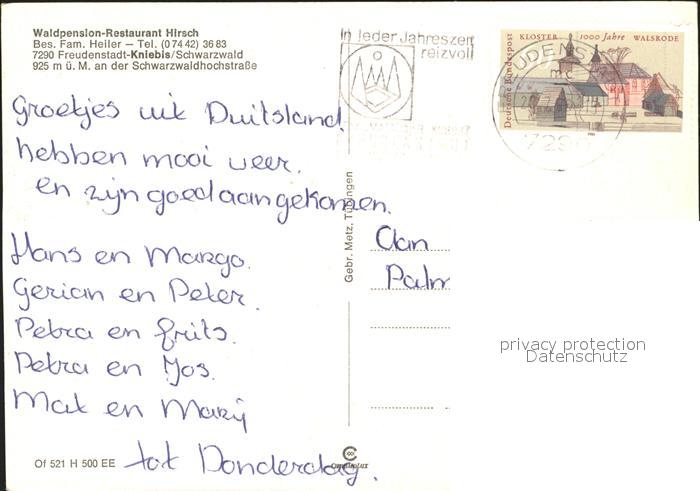 Waldpension-Restaurant Hirsch
Bes. Fam. Heiler – Tel. (0 74 42) 36 83
7290 Freudenstadt-Kniebis/Schwarzwald
925 m ü. M. an der Schwarzwaldhochstraße
In jeder Jahreszeit
reizvoll
Deutsche Bundespost
KLOSTER 1000 Jahre WALSRODE
7290
Groetjes uit Duitsland.
hebben mooi weer.
en zijn goed aangekomen.
Hans en Margo.
Gerian en Peter.
Petra en Frits.
Petra en Jos.
Mat en Marij
tot Donderdag.
Gebr. Metz, Tübingen
Aan
Palm
privacy protection
Datenschutz
Of 521 H 500 EE